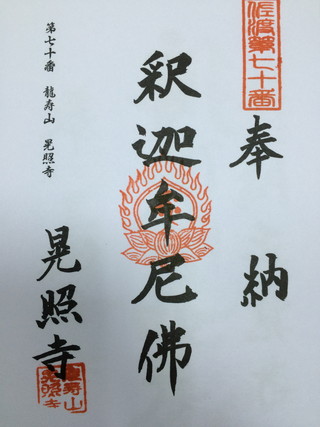 佐渡第七十番
奉納
釈迦牟尼佛
晃照寺
第七十番 龍寿山 晃照寺